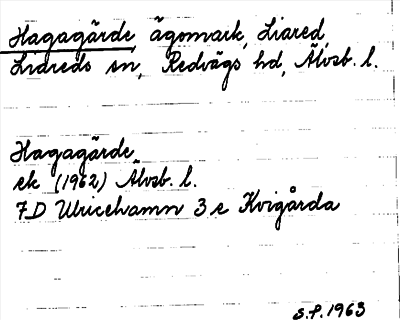 Hagagärde, ägomark, Liared,
Liareds sn, Redvägs hd, Älvsb. l.
Hagagärde
ek (1962) Älvsb. l.
7D Ulricehamn 3 e Kvigårda
S.P. 1963